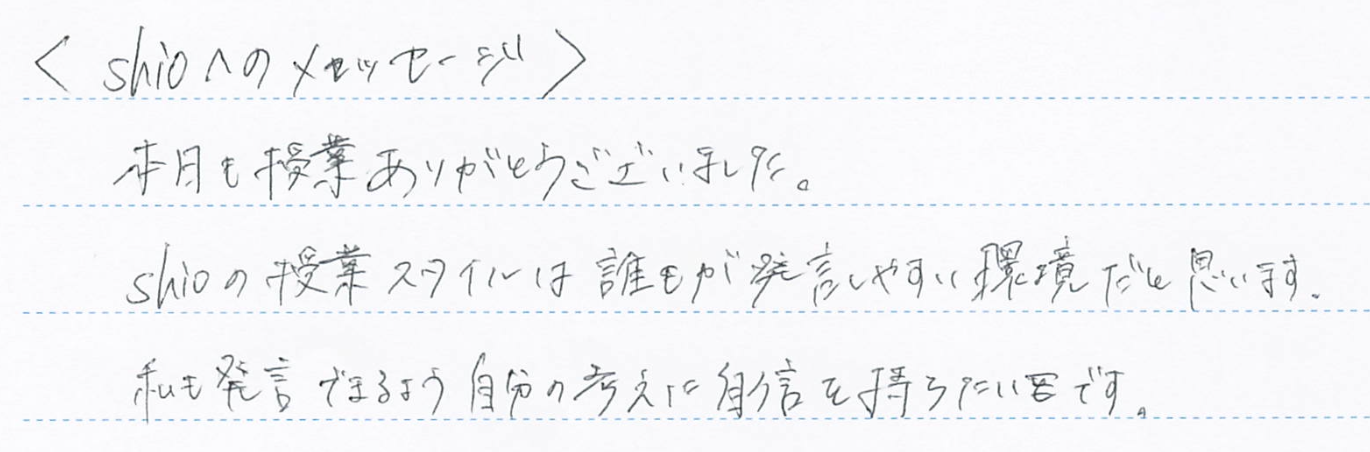 < shioへのメッセージ >
本日も授業ありがとうございました。
shioの授業スタイルは誰もが発言しやすい環境だと思います.
私も発言できるよう自分の考えに自信を持ちたいです。